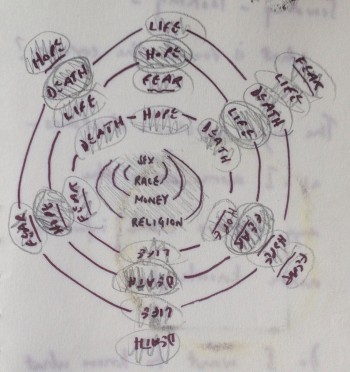 LIFE
HOPE
FEAR
HOPE
DEATH
LIFE
DEATH
HOPE
FEAR
LIFE
DEATH
LIFE
DEATH
SEX
RACE
MONEY
RELIGION
FEAR
HOPE
FEAR
HOPE
FEAR
HOPE
FEAR
LIFE
DEATH
LIFE
DEATH